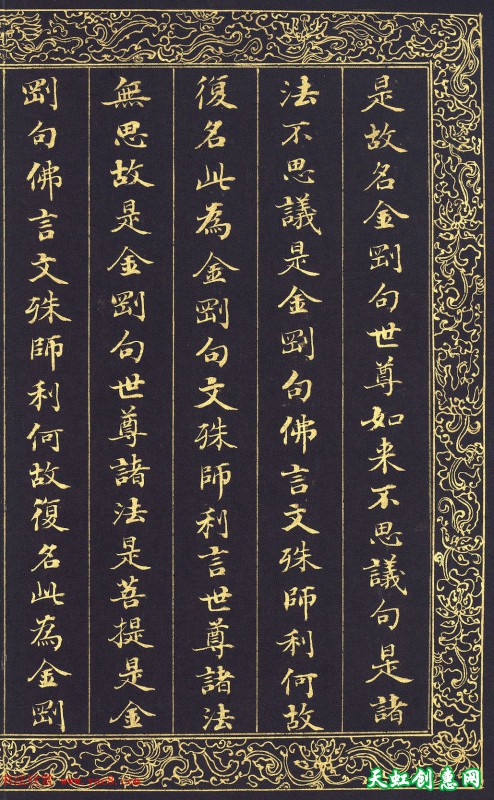 是故名金剛句世尊如来不思議句是諸
法不思議是金剛句佛言文殊師利何故
復名此為金剛句文殊師利言世尊諸法
無思故是金剛句世尊諸法是菩提是金
剛句佛言文殊師利何故復名此為金剛
天虹创惠网